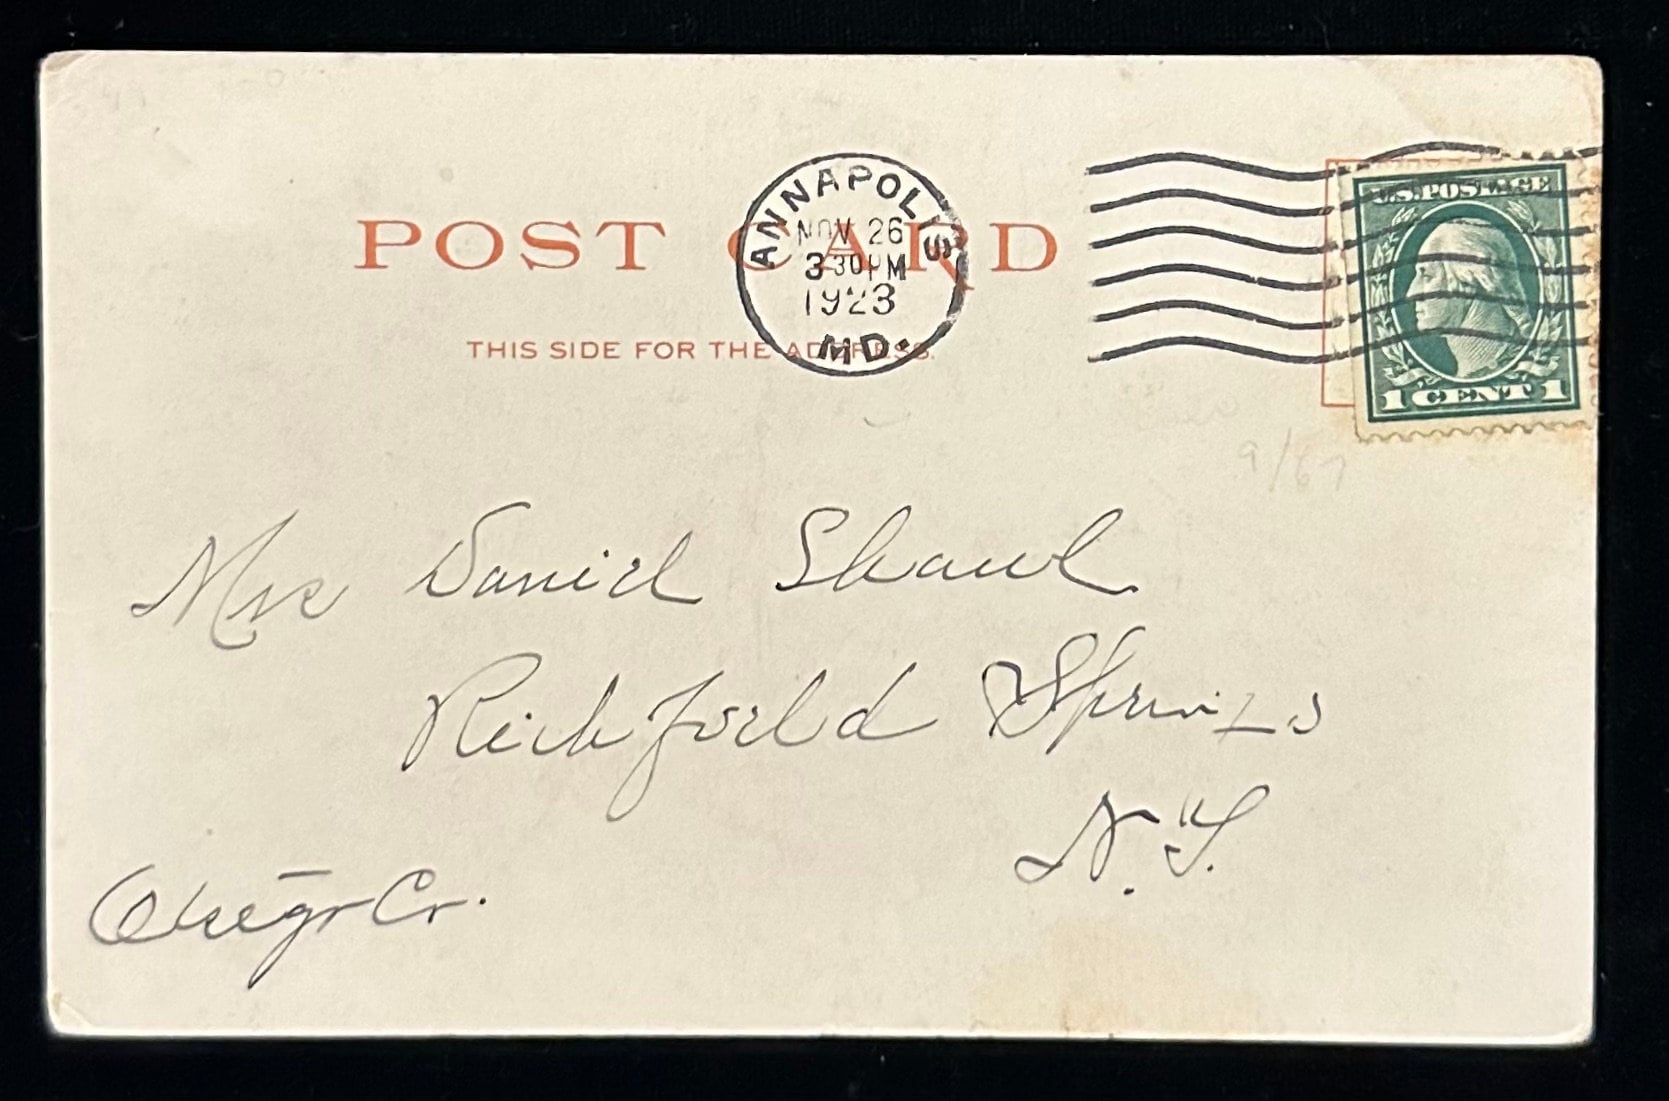 POST CARD
THIS SIDE FOR THE ADDRESS.
ANNAPOLIS
NOV 26
3 30 PM
1923
MD.
U.S. POSTAGE
1 CENT 1
9/67
Mrs Daniel Shaul
Richfield Springs
N.Y.
Otsego Co.